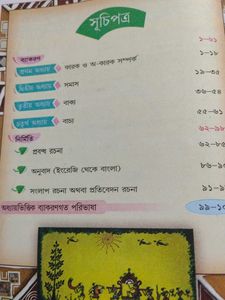 সূচিপত্র
ব্যাকরণ ১-৬১
প্রথম অধ্যায় কারক ও অ-কারক সম্পর্ক ১-১৮
দ্বিতীয় অধ্যায় সমাস ১৯-৩৫
তৃতীয় অধ্যায় বাক্য ৩৬-৫৪
চতুর্থ অধ্যায় বাচ্য ৫৫-৬১
নির্মিতি ৬২-৯
প্রবন্ধ রচনা ৬২-৮
অনুবাদ (ইংরেজি থেকে বাংলা) ৮৬-৯
সংলাপ রচনা অথবা প্রতিবেদন রচনা ৯১-৯
অধ্যায়ভিত্তিক ব্যাকরণগত পরিভাষা ৯৯-১০